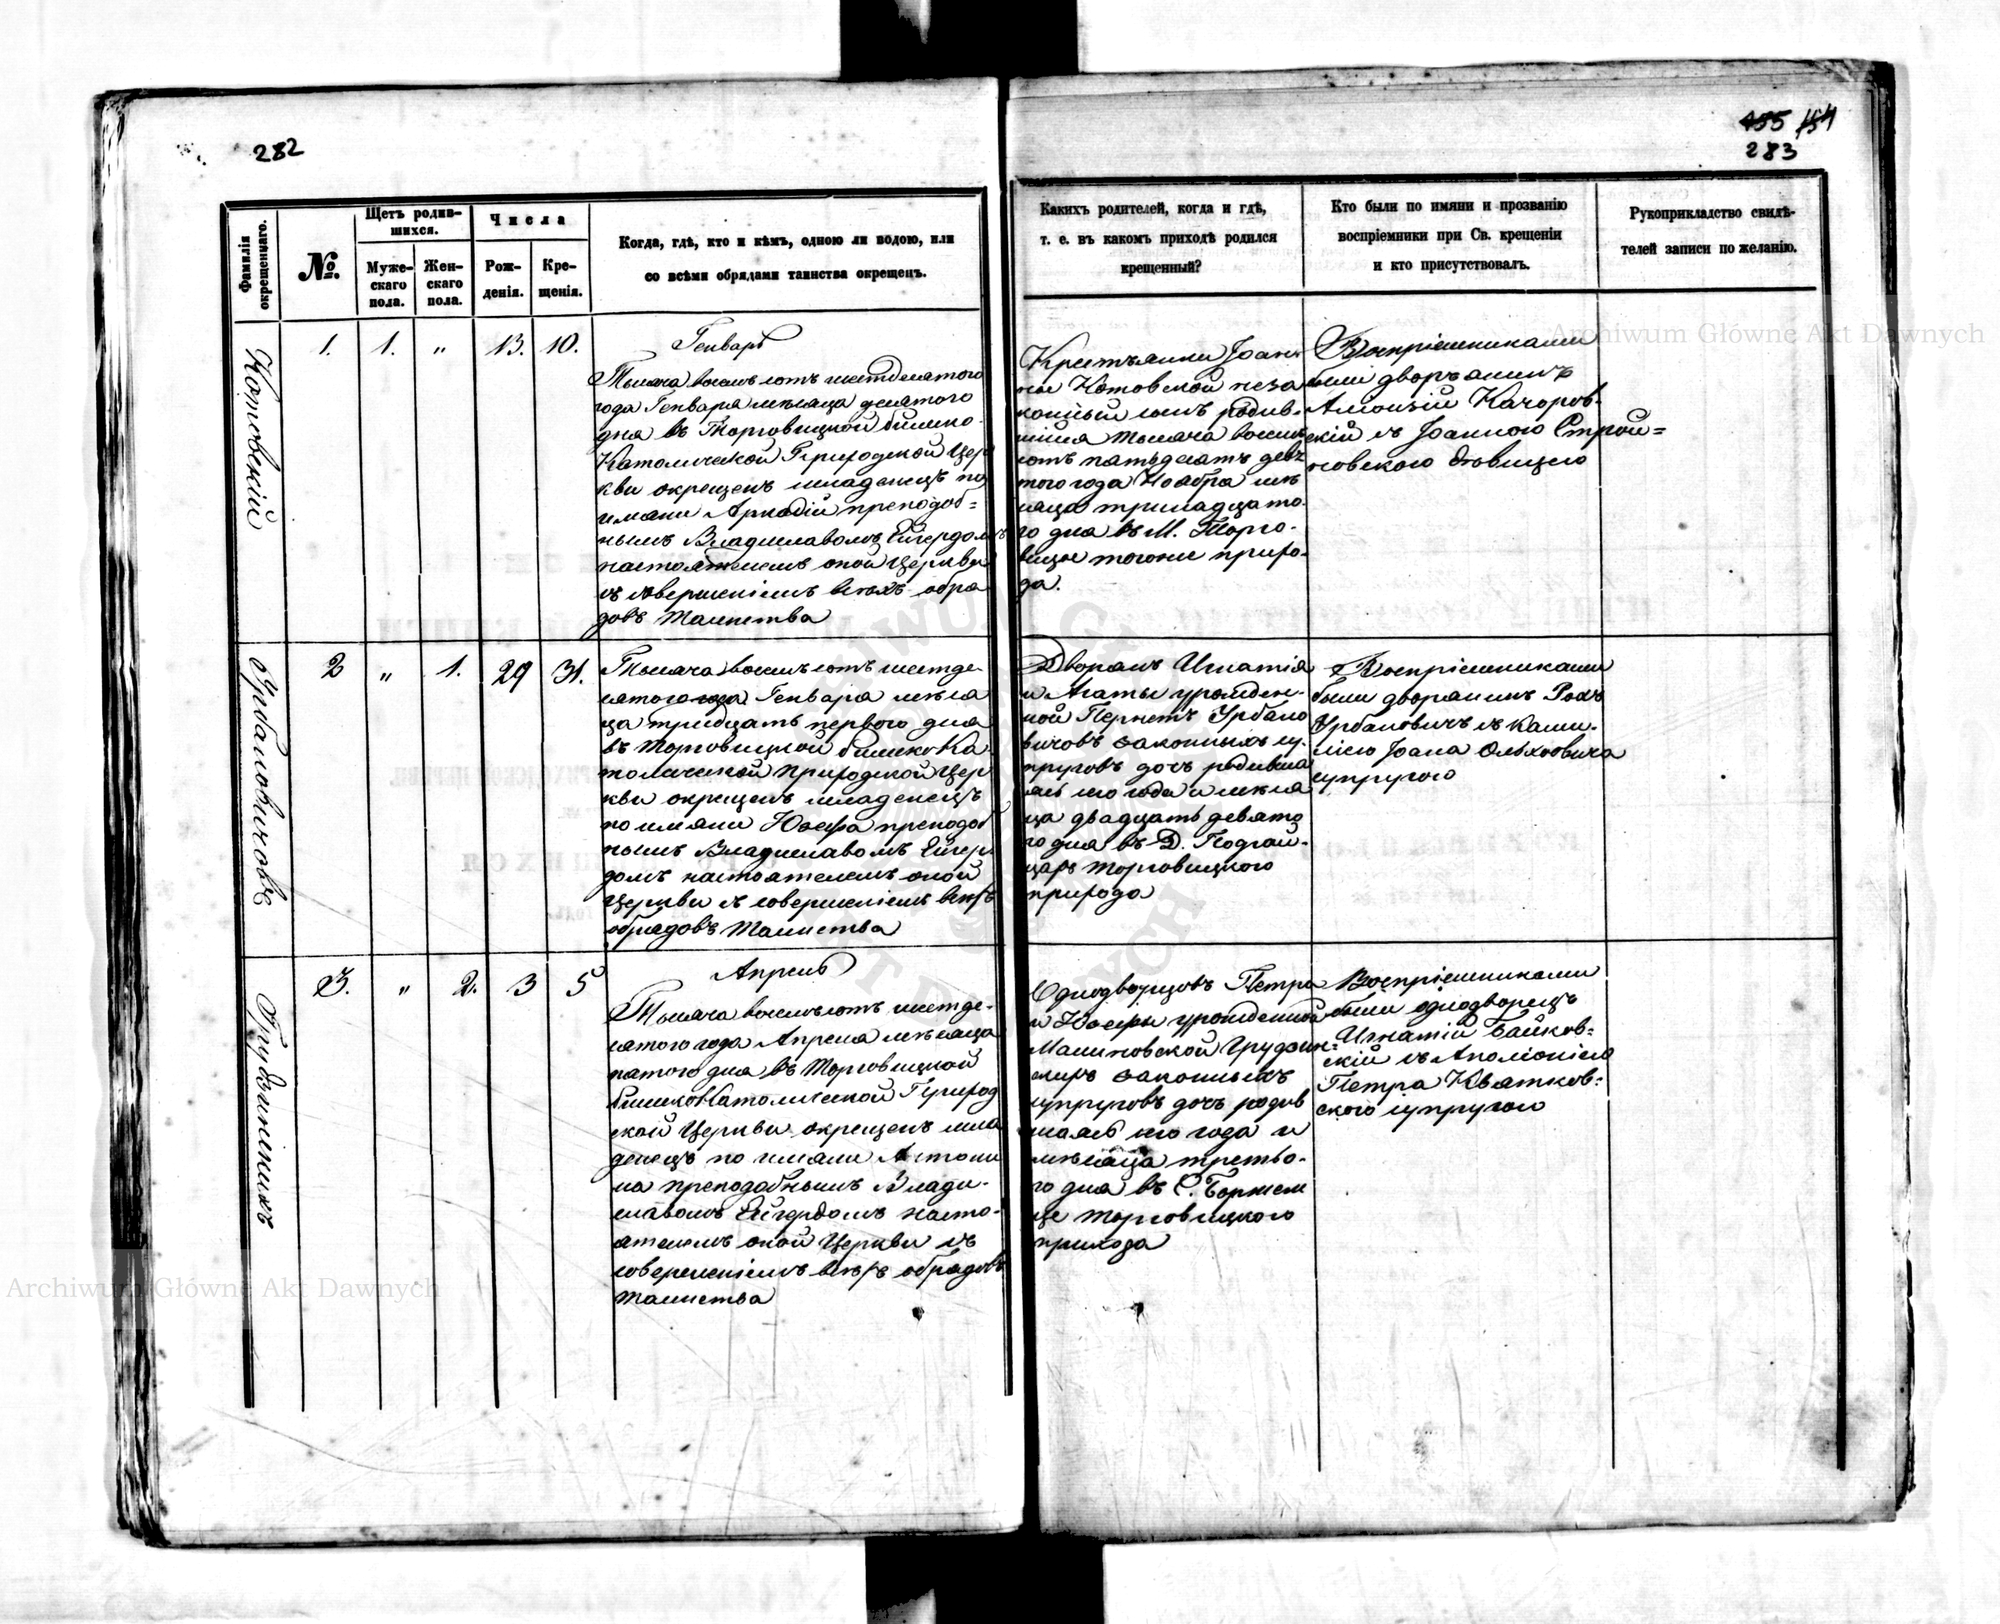 282
455 154
283
Фамилія окрещеннаго.
№.
Щетъ родив-
шихся.
Муже-
скаго
пола.
Жен-
скаго
пола.
Числа
Рож-
денія.
Кре-
щенія.
Когда, гдѣ, кто и кѣмъ, одною ли водою, или
со всѣми обрядами таинства окрещенъ.
Какихъ родителей, когда и гдѣ,
т. е. въ какомъ приходѣ родился
крещенный?
Кто были по имяни и прозванію
воспріемники при Св. крещеніи
и кто присутствовалъ.
Рукоприкладство свидѣ-
телей записи по желанію.
1. 1. " 13. 10.
Генварь
Тысяча восемьсотъ шестдесятого
года Генваря мѣсяца десятого
дня въ Торговицкой Римско-
Католической Приходской Цер
кви окрещенъ младенецъ по
имяни Аркадій преподоб=
нымъ Владиславомъ Ейгердомъ
настоятелемъ оной Церкви
съ совершеніемъ всѣхъ обра
довъ Таинства
Крестьянки Іоан-
ны Котовской неза
конный сынъ родив-
шійся тысяча восемь
сотъ пятьдесятъ девя
того года Ноября мѣ
сяца тринадцато
го дня въ М. Торго-
вицѣ тогоже прихо-
да.
Воспріемниками
были дворянинъ
Алоизій Качоров-
скій съ Іоанною Строй=
новского вдовицею
Урбановичовъ
2 " 1. 29 31.
Тысяча восемьсотъ шестде-
сятого года Генваря мѣся
ца тридцать первого дня
въ Торговицкой Римско Ка
толической Приходской Цер
кви окрещенъ младенецъ
по имяни Юзефа преподоб
нымъ Владиславомъ Ейгер
домъ настоятелемъ оной
Церкви съ совершеніемъ всѣхъ
обрядовъ Таинства
Дворянъ Игнатія
и Агаты урожден-
ной Пернетъ Урбано
вичовъ законныхъ су-
пруговъ дочъ родивша
ясь сего года и мѣся
ца двадцать девято
го дня въ Д. Подгай-
цахъ Торговицкого
прихода
Воспріемниками
были дворянинъ Рохъ
Урбановичъ съ Ками-
лісю Іоана Ольховича
супругою
Грудзинскихъ
3. " 2. 3 5
Апрель
Тысяча восемьсотъ шестде-
сятого года Апреля мѣсяца
пятого дня въ Торговицкой
Римско Католической Приход
ской Церкви окрещенъ мла
денецъ по имяни Антони
на преподобнымъ Влади-
славомъ Ейгердомъ насто-
ятелемъ оной Церкви съ
совершеніемъ всѣхъ обрядовъ
Таинства
Однодворцовъ Петра
и Юзефы урожденной
Малиновской Грудзин-
скихъ законныхъ
супруговъ дочъ родив
шаясь сего года и
мѣсяца третьо-
го дня въ С. Боржем
це Торговицкого
прихода
Воспріемниками
были однодворецъ
Игнатій Байков=
скій съ Аполіоніею
Петра Квятков=
ского супругою
Archiwum Główne Akt Dawnych
Archiwum Główne Akt Dawnych